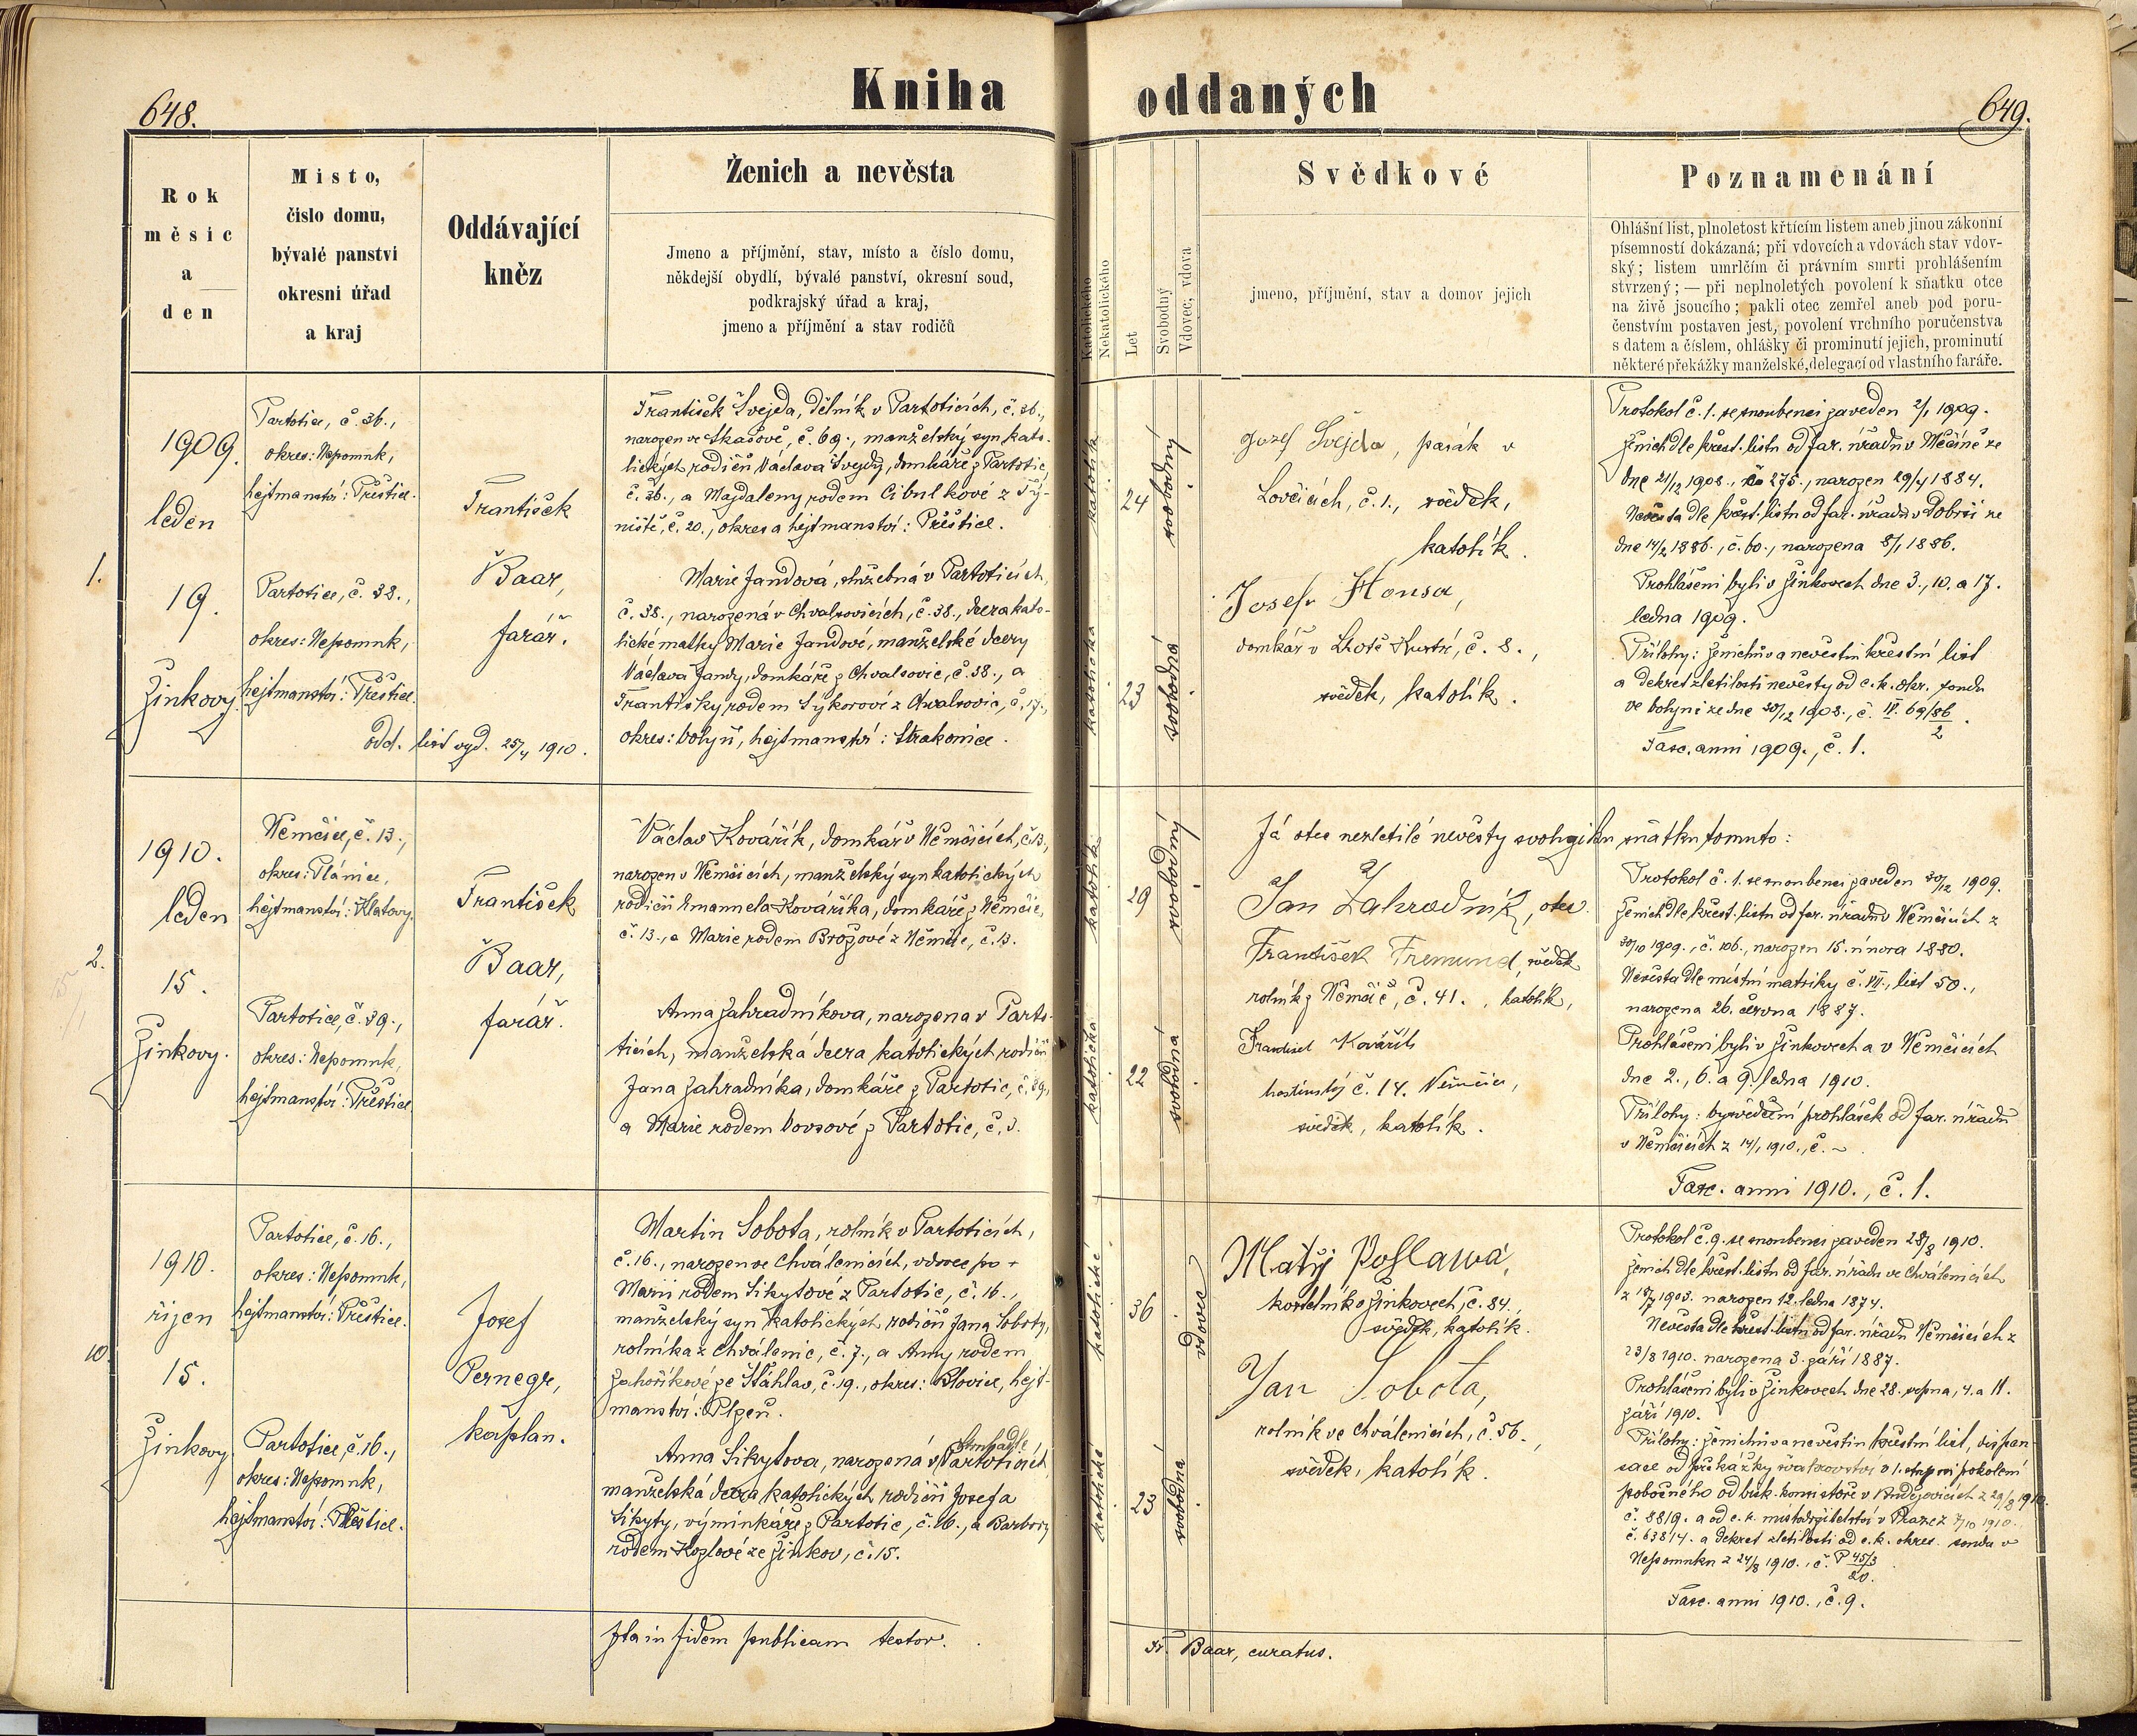 648.
Kniha oddaných
649.
Rok
měsic
a
den
Misto,
čislo domu,
bývalé panstvi
okresni úřad
a kraj
Oddávající
kněz
Ženich a nevěsta
Jmeno a příjmění, stav, místo a číslo domu,
někdejší obydlí, bývalé panství, okresní soud,
podkrajský úřad a kraj,
jmeno a příjmění a stav rodičů
Katolického
Nekatolického
Let
Svobodný
Vdovec, vdova
Svědkové
jmeno, příjmění, stav a domov jejich
Poznamenání
Ohlášní list, plnoletost křtícím listem aneb jinou zákonní
písemností dokázaná; při vdovcích a vdovách stav vdov-
ský; listem umrlčím či právním smrti prohlášením
stvrzený; — při neplnoletých povolení k sňatku otce
na živě jsoucího; pakli otec zemřel aneb pod poru-
čenstvím postaven jest, povolení vrchního poručenstva
s datem a číslem, ohlášky či prominutí jejich, prominutí
některé překážky manželské, delegací od vlastního faráře.
1.
1909.
leden
19.
Žinkovy.
Partotice, č. 36.,
okres: Nepomuk,
hejtmanství: Přeštice.
Partotice, č. 38.,
okres: Nepomuk,
hejtmanství: Přeštice.
odd. list vyd. 25/4 1910.
František
Baar,
farář.
František Švejda, dělník v Partoticích, č. 36.,
narozen ve Skašově, č. 69., manželský syn kato-
lických rodičů Václava Švejdy, domkáře z Partotic,
č. 36., a Magdaleny rodem Cibulkové z Tý-
niště, č. 20., okres a hejtmanství: Přeštice.
Marie Jandová, služebná v Partoticích,
č. 38., narozená v Chvalšovicích, č. 38., dcera kato-
lické matky Marie Jandové, manželské dcery
Václava Jandy, domkáře z Chvalšovic, č. 38., a
Františky rodem Sýkorové z Chvalšovic, č. 17.,
okres: Volyň, hejtmanství: Strakonice.
katolík
24
svobodný
katolička
23
svobodná
Josef Švejda, pasák v
Lovčicích, č. 1., svědek,
katolík.
Josef Honsa,
domkář v Lhotě Kustré, č. 8.,
svědek, katolík.
Protokol č. 1. se snoubenci zaveden 2/1 1909.
Ženich dle křest. listu od far. úřadu v Měčíně ze
dne 21/12 1908., č. 275., narozen 29/4 1884.
Nevěsta dle křest. listu od far. úřadu v Dobrši ze
dne 14/2 1886., č. 60., narozena 8/1 1886.
Prohlášeni byli v Žinkovech dne 3., 10. a 17.
ledna 1909.
Přílohy: ženichův a nevěstin křestní list
a dekret zletilosti nevěsty od c. k. okr. soudu
ve Volyni ze dne 30/12 1908., č. IV. 69/86 2.
Fasc. anni 1909., č. 1.
2.
1910.
leden
15.
Žinkovy.
Němčice, č. 13.,
okres: Plánice,
hejtmanství: Klatovy.
Partotice, č. 39.,
okres: Nepomuk,
hejtmanství: Přeštice.
František
Baar,
farář.
Václav Kovářík, domkář v Němčicích, č. 13.,
narozen v Němčicích, manželský syn katolických
rodičů Emanuela Kováříka, domkáře z Němčic,
č. 13., a Marie rodem Brožové z Němčic, č. 13.
Anna Zahradníkova, narozena v Parto-
ticích, manželská dcera katolických rodičů
Jana Zahradníka, domkáře z Partotic, č. 39.,
a Marie rodem Vovsové z Partotic, č. 3.
katolík
29
svobodný
katolička
22
svobodná
Já otec nezletilé nevěsty svoluji ku sňatku tomuto:
Jan Zahradník, otec.
František Tremund, svědek
rolník z Němčic, č. 41., katolík,
František Kovářík
hostinský č. 14. Němčice,
svědek, katolík.
Protokol č. 1. se snoubenci zaveden 30/12 1909.
Ženich dle křest. listu od far. úřadu v Němčicích z
30/10 1909., č. 106., narozen 15. února 1880.
Nevěsta dle místní matriky č. VII., list 50.,
narozena 26. června 1887.
Prohlášeni byli v Žinkovech a v Němčicích
dne 2., 6. a 9. ledna 1910.
Přílohy: vysvědčení prohlášek od far. úřadu
v Němčicích z 14/1 1910., č. ~
Fasc. anni 1910., č. 1.
10.
1910.
říjen
15.
Žinkovy
Partotice, č. 16.,
okres: Nepomuk,
hejtmanství: Přeštice.
Partotice, č. 16.,
okres: Nepomuk,
hejtmanství: Přeštice.
Josef
Pernegr,
kaplan.
Martin Sobota, rolník v Partoticích,
č. 16., narozen ve Chválenicích, vdovec po +
Marii rodem Sikytové z Partotic, č. 16.,
manželský syn katolických rodičů Jana Soboty,
rolníka z Chválenic, č. 7., a Anny rodem
Zahoříkové ze Šťáhlav, č. 19., okres: Blovice, hejt-
manství: Plzeň.
Anna Sikytova, narozená v Partoticích,
manželská dcera katolických rodičů Josefa
Sikyty, výminkáře z Partotic, č. 16., a Barbory
rodem Kozlové ze Žinkov, č. 15.
katolické
36
vdovec
katolické
23
svobodná
Matěj Poslawa,
kostelník v Žinkovech, č. 84.,
svědek, katolík.
Jan Sobota,
rolník ve Chválenicích, č. 56.,
svědek, katolík.
Protokol č. 9. se snoubenci zaveden 28/8 1910.
Ženich dle křest. listu od far. úřadu ve Chválenicích
z 18/7 1903. narozen 12. ledna 1874.
Nevěsta dle křest. listu od far. úřadu Němčicích z
23/8 1910. narozena 3. září 1887.
Prohlášeni byli v Žinkovech dne 28. srpna, 4. a 11.
září 1910.
Přílohy: ženichův a nevěstin křestní list, dispen-
sace od překážky švakrovství v 1. stupni pokolení
pobočného od bisk. konsistoře v Budějovicích z 29/8 1910.
č. 8819. a od c. k. místodržitelství v Praze z 7/10 1910.
č. 63814. a dekret zletilosti od c. k. okres. soudu v
Nepomuku z 24/8 1910., č. P 45/3 20.
Fasc. anni 1910., č. 9.
Ita in fidem publicam testor.
Fr. Baar, curatus.